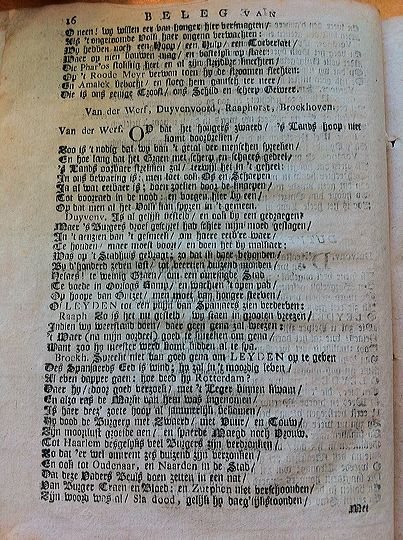 16 BELEG VAN
O neen! wy willen eer van honger hier versmagten/
Als 't ongetoomde volk hier ongena verwachten:
Wy hebben noch een Hoop/ een Hulp/ een Toeverlaet/
Waer op men bouwen mag/ en vastelijk op staet:
Die Phar'os stoffing heet en al zijn strijdbre knechten/
Op 't Roode Meyr verwon toen hy de stroomen slechten:
En Amalek behocht/ en sloeg hem gantsch ter neer/
Die is ons eenige Troost/ ons Schild en scherp Geweer.
Van der Werf, Duyvenvoord, Raaphorst, Brockhoven.
Van der Werf. OP dat het hongers zwaerd/ 's Lands hoop niet
komt doorbreken/
Zoo is 't nodig dat wy van 't getal der menschen spreken/
En hoe lang dat het Graen met scherp en schaers gebiet/
's Lands oosten strekken zal/ terwijl het in 't geheel:
In ons bewaring is: men doet ook Os en Schapen
Ja al wat eetbaer is; doen zoeken door de knapen/
Tot voorraed in de nood: er voegen hier by een/
Op dat men al het Volk kan spyzen in 't gemeen.
Duyvenv. Is al gelijk besteld/ en ook by een gedraegen:
Maer 's Burgers droef geschrei had schier mijn moed geslagen/
In 't aenzien van 't gezicht/ om haere eerb're waer
Te houden/ maer moest voort/ en doen het by malkaer:
Was op 't Stadhuis gebragt; zo dat ik haer behouden/
By d'honderd zeven last/ tot veertien duizend monden/
Pesaers! te weinig Graen/ om een oneindige Stad
Te voede in Oorlogs Kamp/ en wachten 't open pad/
Op hoope van Ontzet/ men moet van honger sterven/
O LEYDEN tot een prooi van Spanjaers zien verderven:
Raaph. Zo is het nu gesteld/ wy staen in grooten vreezen/
Indien wy weerstand doen/ daer geen gena zal weezen:
't Waer (na mijn oordeel) goed te smeeken om gena/
Want zoo hy meester werd komt bidden al te spa.
Brockh. Spreekt niet van goed gena om LEYDEN op te geben
Des Spanjaerds Eed is wind; hy zal in 't moordig leven/
Al even dapper gaen: hoe deed hy Rotterdam?
Daer hy/ door goed verzoek/ met 't Leger binnen kwam/
En alzo ras de Markt van hem was ingenomen/
Is haer deez' zoete hoop al jammerlijk bekomen/
Hy dood de Burgery met Zwaerd/ met Vuur/ en Touw/
Zijn moordlust groeide aen/ en spaerde Maegd noch Vrouw.
Tot Haerlem desgelijks veel Burgers zijn verdronken/
Zo dat 'er wel omtrent zes duizend zijn verzonken/
En ook tot Oudenaar, en Naarden in de Stad/
Dat deze Vaders Beuls doen zetten in een nat/
Van Burger Traen en Bloed: en Zutphen niet verschoonden/
Zijn woord was al/ Sla dood, gelijk hy daeg'lijks toonden/
Met